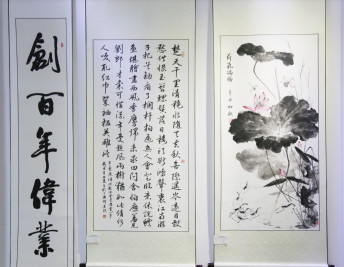 創百年偉業
楚天千里清秋水隨天去秋無際遥岑遠目獻
愁供恨玉簪螺髻落日樓頭斷鴻聲裏江南游
子把吳鉤看了欄杆拍遍無人會登臨意休說鱸
魚堪膾盡西風季鷹歸未求田問舍怕應羞見
劉郎才氣可惜流年憂愁風雨樹猶如此倩何
人喚取紅巾翠袖揾英雄淚